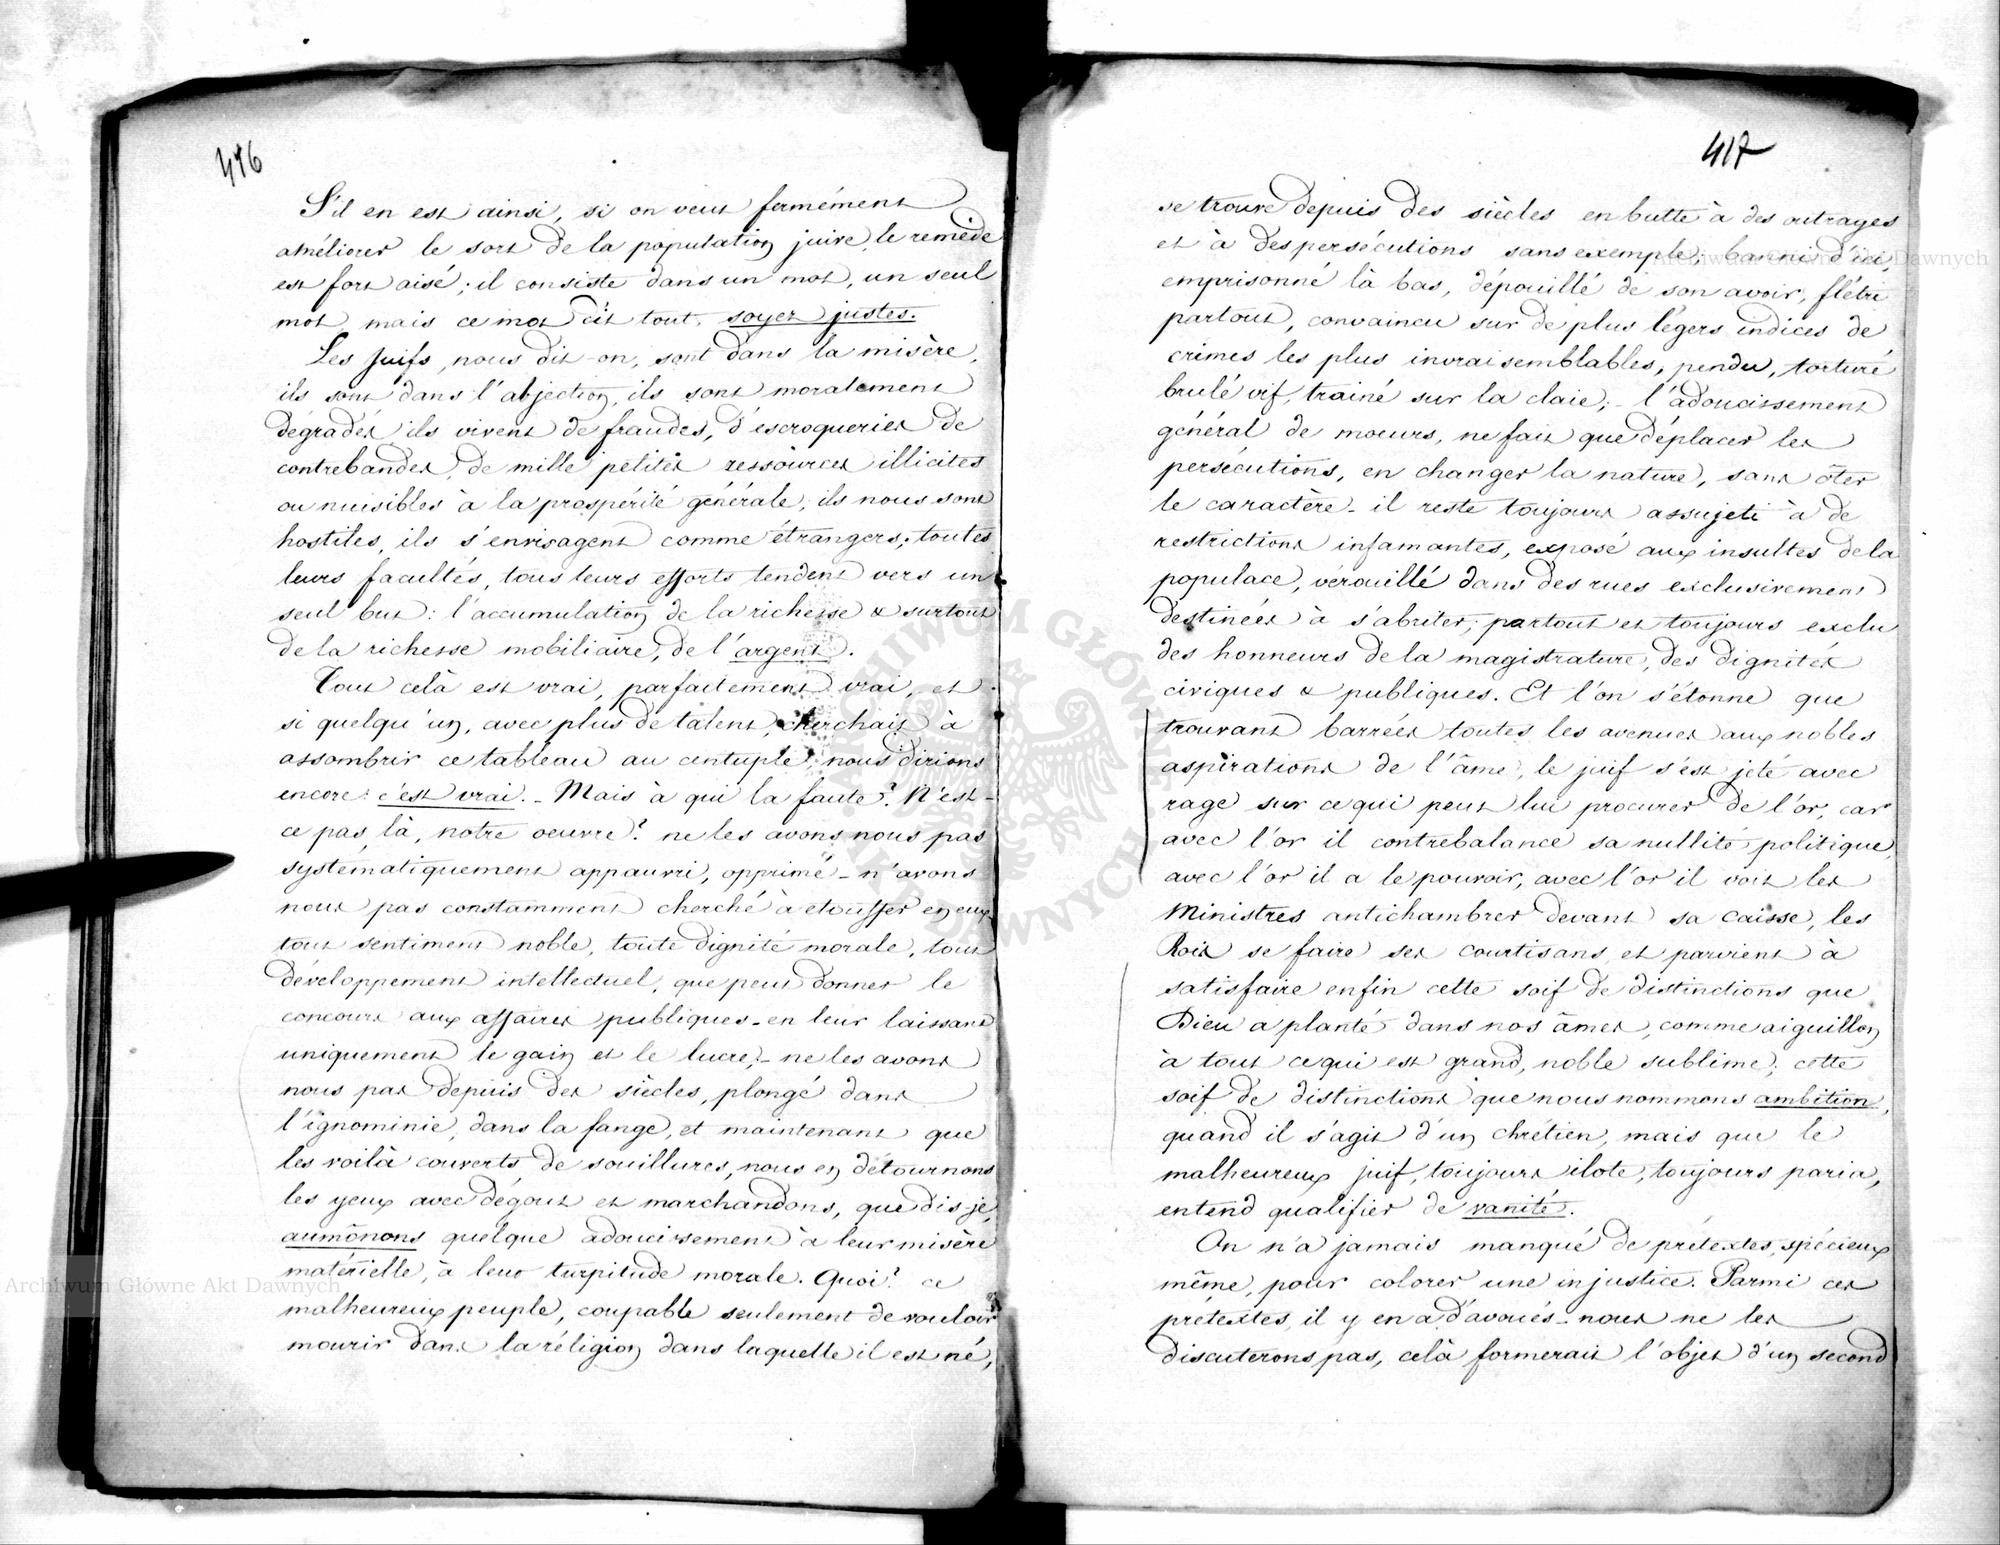 416
S'il en est ainsi, si on veut fermément
améliorer le sort de la population juive, le remède
est fort aisé; il consiste dans un mot, un seul
mot mais ce mot dit tout, soyez justes.
Les Juifs, nous dit-on, sont dans la misère,
ils sont dans l'abjection, ils sont moralement
dégradés, ils vivent de fraudes, d'escroqueries de
contrebandes, de mille petites ressources illicites
ou nuisibles à la prospérité générale; ils nous sont
hostiles, ils s'envisagent comme étrangers; toutes
leurs facultés, tous leurs efforts tendent vers un
seul but: l'accumulation de la richesse & surtout
de la richesse mobiliaire, de l'argent.
Tout celà est vrai, parfaitement vrai, et
si quelqu'un, avec plus de talent, cherchait à
assombrir ce tableau au centuple, nous dirions
encore: c'est vrai. - Mais à qui la faute? N'est-
ce pas là, notre oeuvre? ne les avons nous pas
systématiquement appauvri, opprimé - n'avons
nous pas constamment cherché à étouffer en eux
tout sentiment noble, toute dignité morale, tout
développement intellectuel, que peut donner le
concours aux affaires publiques - en leur laissant
uniquement le gain et le lucre, - ne les avons
nous pas depuis des siècles, plongé dans
l'ignominie, dans la fange, et maintenant que
les voilà couverts de souillures, nous en détournons
les yeux avec dégout et marchandons, que dis-je,
aumônons quelque adoucissement à leur misère
matérielle, à leur turpitude morale. Quoi? ce
malheureux peuple, coupable seulement de vouloir
mourir dans la réligion dans laquelle il est né,
417
se trouve depuis des siècles en butte à des outrages
et à des persécutions sans exemple; banni d'ici,
emprisonné là bas, dépouillé de son avoir, flétri
partout, convaincu sur de plus légers indices de
crimes les plus invraisemblables, pendu, torturé
brulé vif, trainé sur la claie; - l'adoucissement
général de moeurs, ne fait que déplacer les
persécutions, en changer la nature, sans ôter
le caractère - il reste toujours assujeti à de
restrictions infamantes, exposé aux insultes de la
populace, vérouillé dans des rues exclusivement
destinées à s'abriter; partout et toujours exclu
des honneurs de la magistrature, des dignités
civiques & publiques. Et l'on s'étonne que
trouvant barrées toutes les avenues aux nobles
aspirations de l'âme, le juif s'est jeté avec
rage sur ce qui peut lui procurer de l'or, car
avec l'or il contrebalance sa nullité politique,
avec l'or il a le pouvoir, avec l'or il voit les
Ministres antichambrer devant sa caisse, les
Rois se faire ses courtisans et parvient à
satisfaire enfin cette soif de distinctions que
Dieu a planté dans nos âmes, comme aiguillon
à tout ce qui est grand, noble sublime; cette
soif de distinctions que nous nommons ambition,
quand il s'agit d'un chrétien, mais que le
malheureux juif, toujours ilote, toujours paria,
entend qualifier de vanité.
On n'a jamais manqué de prétextes, spécieux
même, pour colorer une injustice. Parmi ces
prétextes, il y en a d'avoués - nous ne les
discuterons pas, celà formerait l'objet d'un second
Archiwum Główne Akt Dawnych